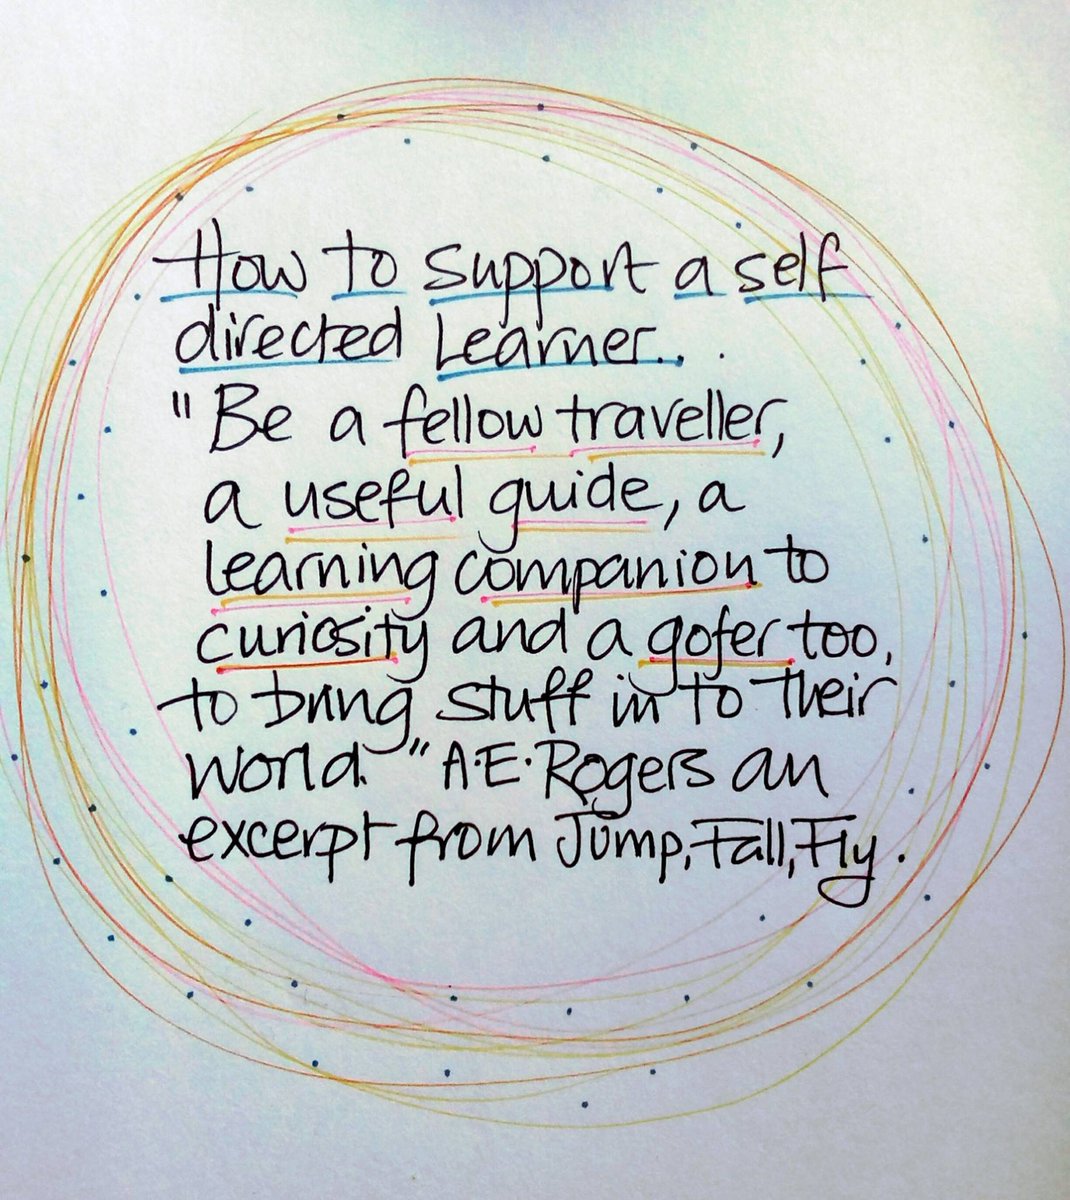 How to support a self
directed Learner...
"Be a fellow traveller,
a useful guide, a
learning companion to
curiosity and a gofer too,
to bring stuff in to their
world." A.E. Rogers an
excerpt from Jump, Fall, Fly.